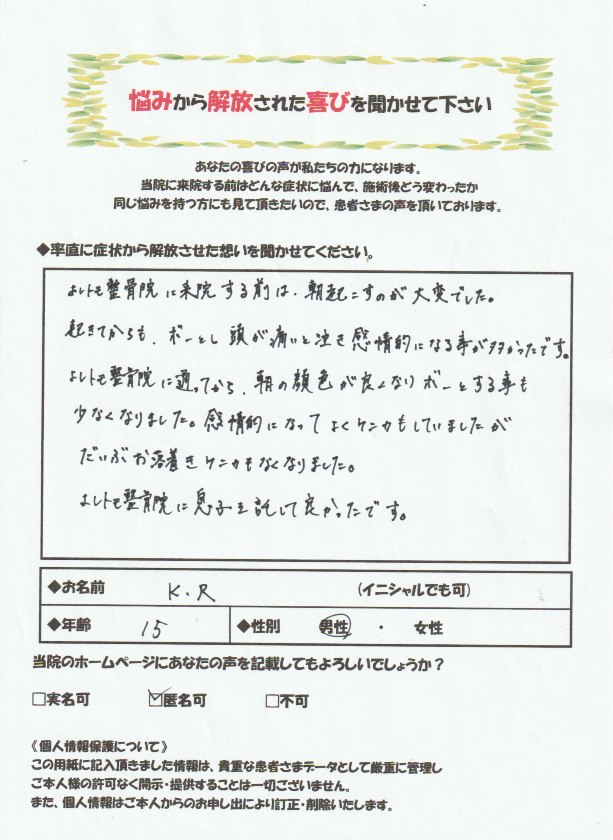 悩みから解放された喜びを聞かせて下さい
あなたの喜びの声が私たちの力になります。
当院に来院する前はどんな症状に悩んで、施術後どう変わったか
同じ悩みを持つ方にも見て頂きたいので、患者さまの声を頂いております。
◆率直に症状から解放させた想いを聞かせてください。
よしトモ整骨院に来院する前は、朝起こすのが大変でした。
起きてからも、ボーとし頭が痛いと泣き感情的になる事が多かったです。
よしトモ整骨院に通ってから、朝の顔色が良くなりボーとする事も
少なくなりました。感情的になってよくケンカもしていましたが
だいぶお落着きケンカもなくなりました。
よしトモ整骨院に息子を託して良かったです。
◆お名前 K.R (イニシャルでも可)
◆年齢 15 ◆性別 男性 ・ 女性
当院のホームページにあなたの声を記載してもよろしいでしょうか？
□実名可 ☑匿名可 □不可
《個人情報保護について》
この用紙に記入頂きました情報は、貴重な患者さまデータとして厳重に管理し
ご本人様の許可なく開示・提供することは一切ございません。
また、個人情報はご本人からのお申し出により訂正・削除いたします。